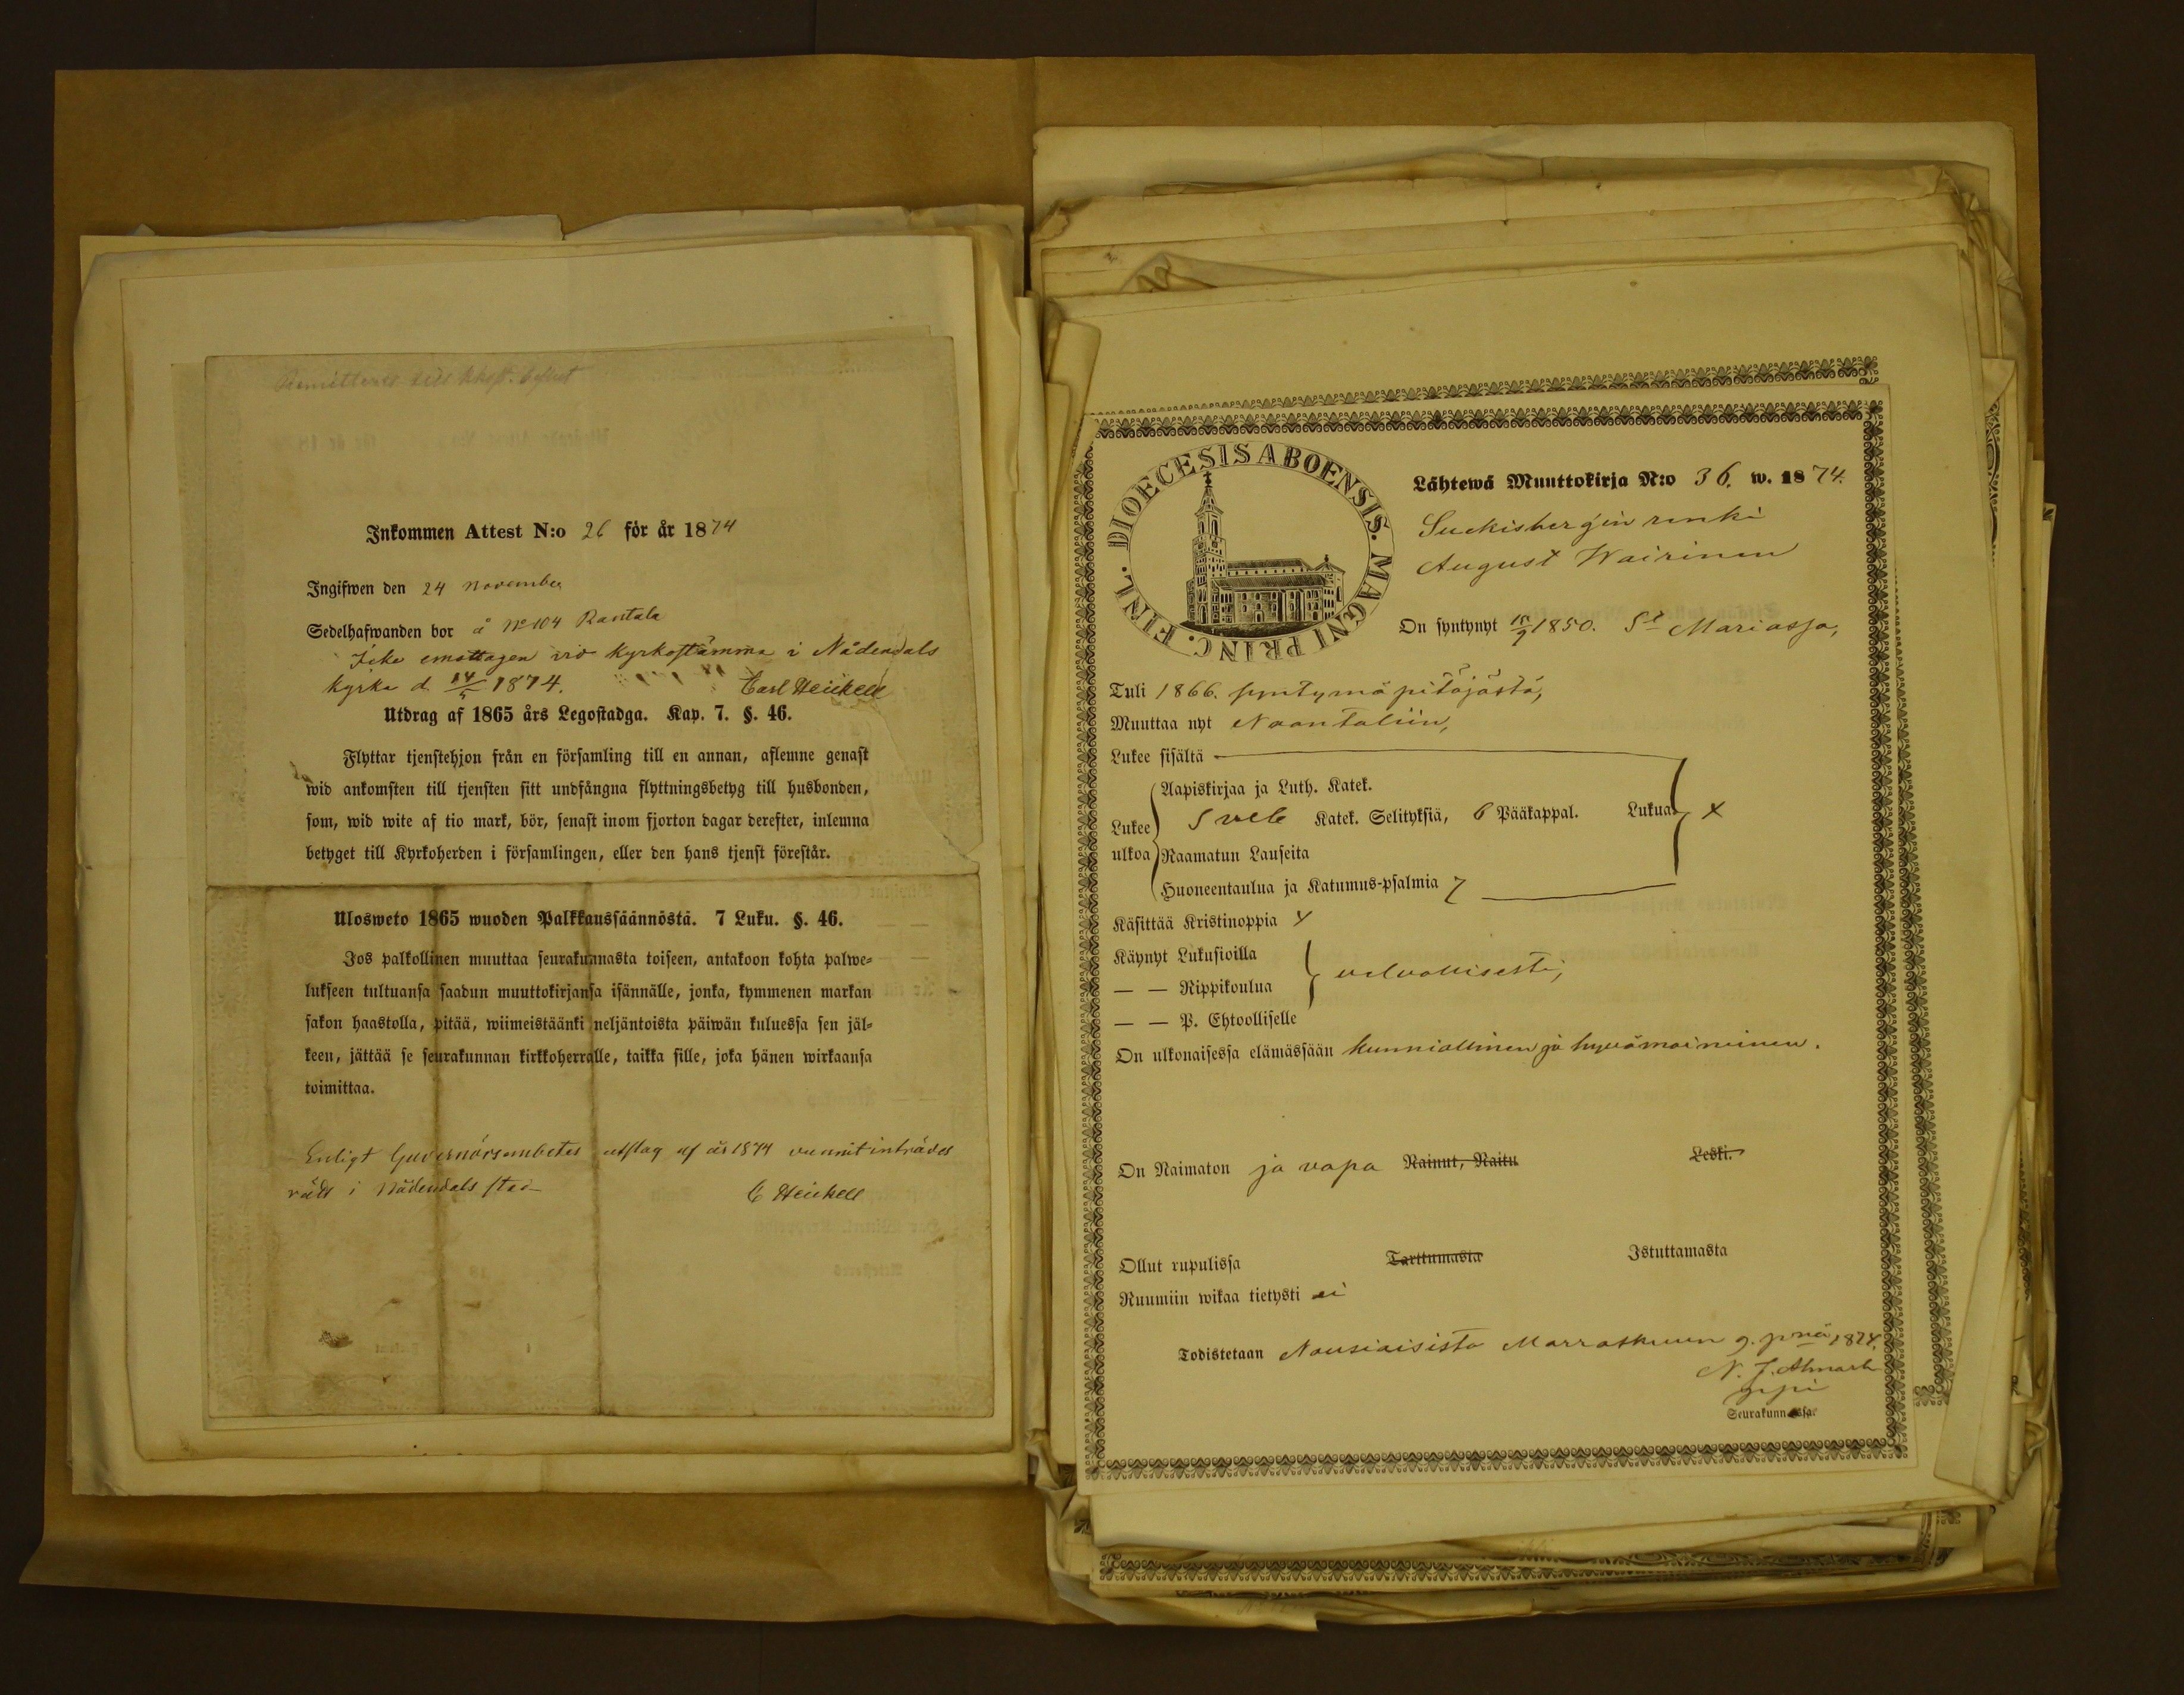 Remitteras till
Inkommen Attest N:o 26 för år 1874
Ingifwen den 24 November
Sedelhafwanden bor å No 104 Rantala
Icke emottagen vid kyrkostämma i Nådendals
kyrka d. 14/5 1874. Carl Heickell
Utdrag af 1865 års Legostadga. Kap. 7. §. 46.
Flyttar tjenstehjon från en församling till en annan, aflemne genast
wid ankomsten till tjensten sitt undfångna flyttningsbetyg till husbonden,
som, wid wite af tio mark, bör, senast inom fjorton dagar derefter, inlemna
betyget till Kyrkoherden i församlingen, eller den hans tjenst förestår.
Ulosweto 1865 wuoden Palkkaussäännöstä. 7 Luku. §. 46.
Jos palkollinen muuttaa seurakunnasta toiseen, antakoon kohta palwe-
lukseen tultuansa saadun muuttokirjansa isännälle, jonka, kymmenen markan
sakon haastolla, pitää, wiimeistäänki neljäntoista päiwän kuluessa sen jäl-
keen, jättää se seurakunnan kirkkoherralle, taikka sille, joka hänen wirkaansa
toimittaa.
Enligt Guvernörsembetes utslag af år 1874 vunnit inträdes
rätt i Nådendals stad C Heickell
DIOECESIS ABOENSIS. MAGNI PRINC. FINL.
Lähtewä Muuttokirja N:o 36. w. 1874.
Suckisbergin renki
August Wairinen
On syntynyt 1850. St Mariassa,
Tuli 1866. syntymäpitäjästä,
Muuttaa nyt Naantaliin,
Lukee sisältä
Aapiskirjaa ja Luth. Katek.
Lukee ulkoa
Katek. Selityksiä, 6 Pääkappal. Lukua x
Raamatun Lauseita
Huoneentaulua ja Katumus-psalmia 7
Käsittää Kristinoppia x
Käynyt Lukusioilla
— — Rippikoulua velvollisesti,
— — P. Ehtoolliselle
On ulkonaisessa elämässään kunniallinen ja hyvämaineinen.
On Naimaton ja vapa Nainut, Naitu Leski.
Ollut rupulissa Tarttumasta Istuttamasta
Ruumiin wikaa tietysti ei
Todistetaan Nousiaisista Marraskuun 9. pnä 1874.
Seurakunnassa.